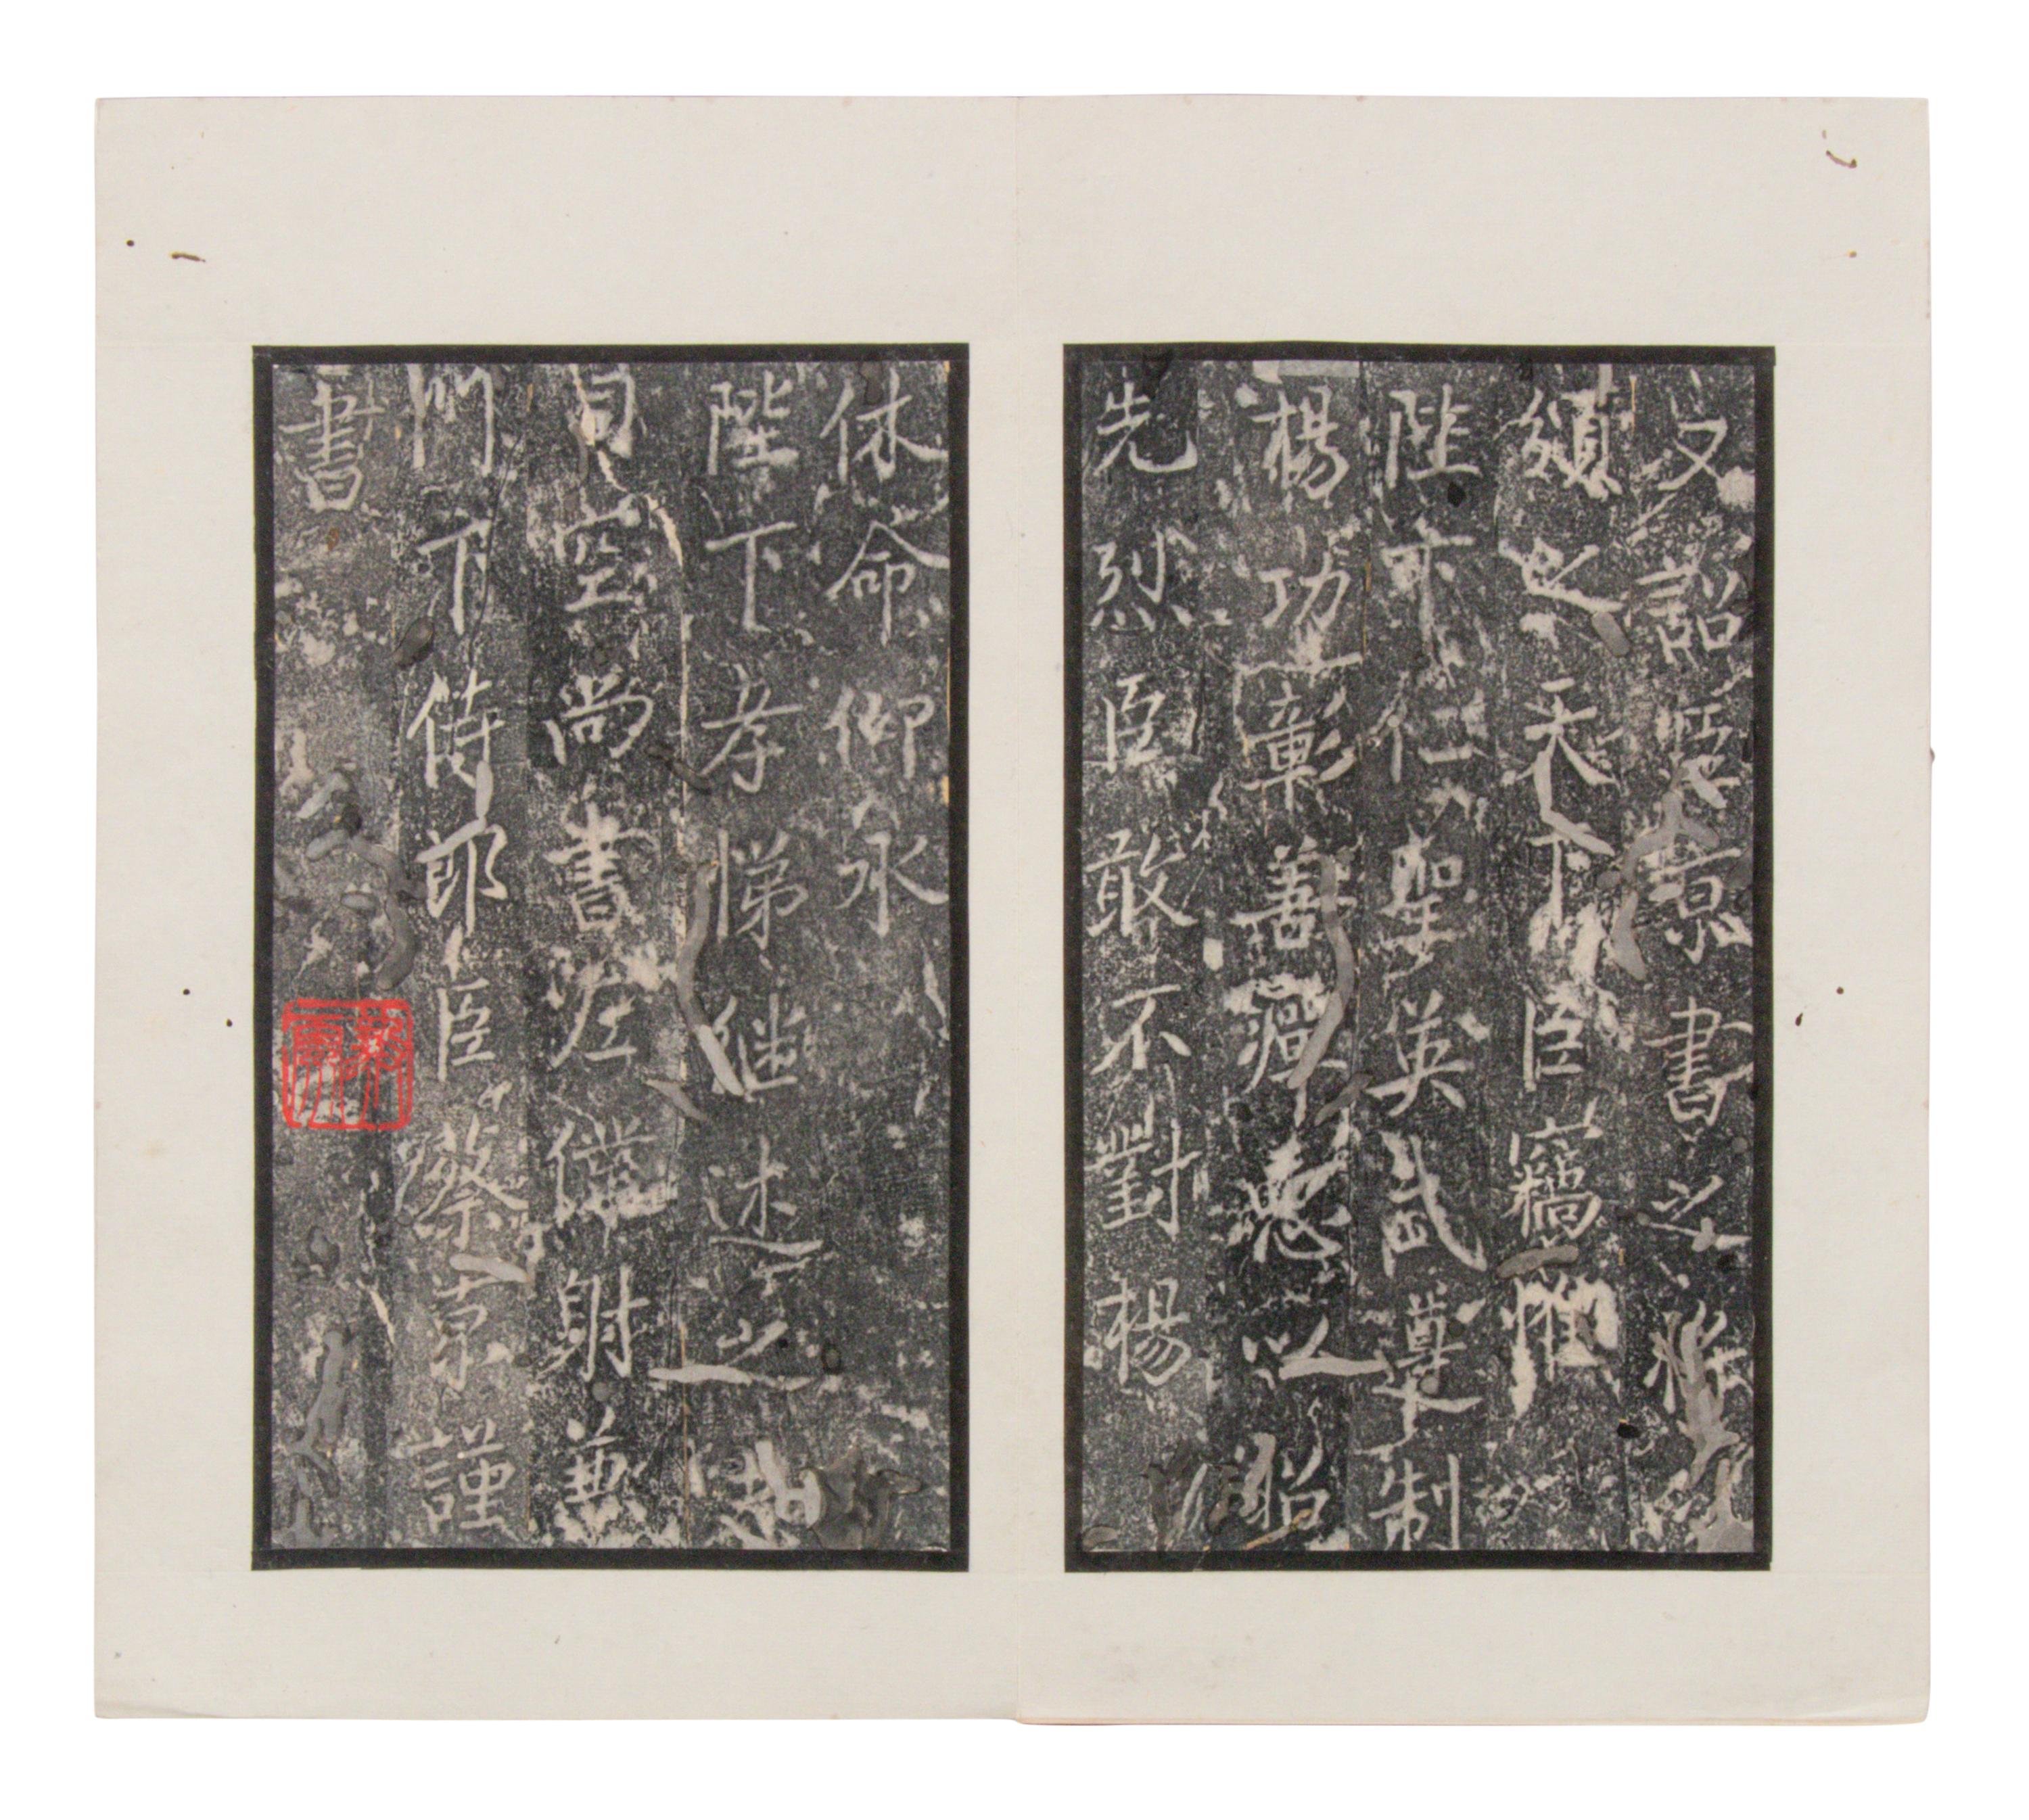 又詔臣京書之將
頒之天下臣竊惟
陛下仁聖英武遵制
揚功彰善癉惡以昭
先烈臣敢不對揚
休命仰承
陛下孝悌继述之志
司空尚書左僕射兼
門下侍郎臣蔡京謹
書